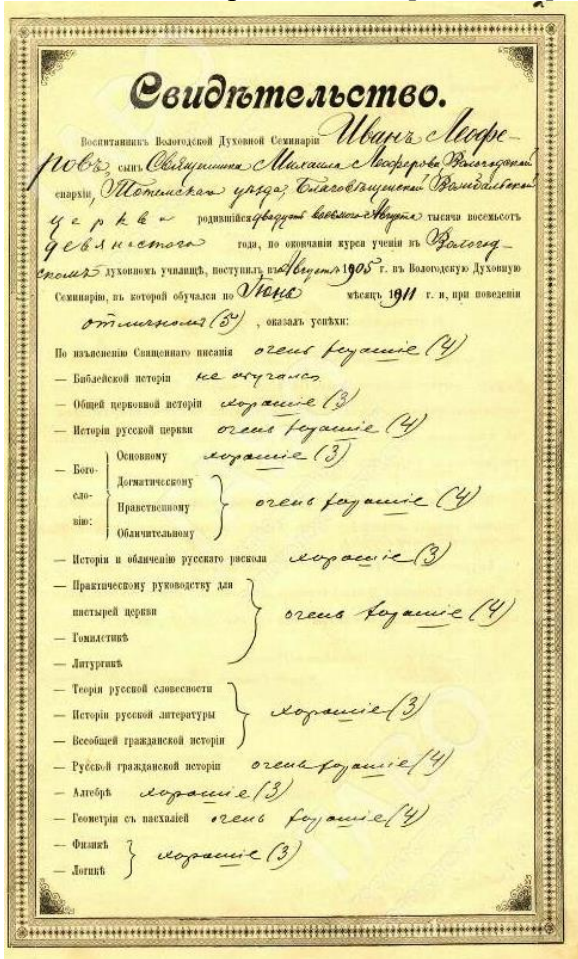 Свидѣтельство.
Воспитанникъ Вологодской Духовной Семинаріи Иванъ Леофе-
ровъ, сынъ Священника Михаила Леоферова Вологодской
епархіи, Тотемскаго уѣзда, Благовѣщенской
церкви родившійся двадцать восьмого Августа тысяча восемьсотъ
девяностого года, по окончаніи курса ученія въ Вологод-
скомъ духовномъ училищѣ, поступилъ въ Августѣ 1905 г. въ Вологодскую Духовную
Семинарію, въ которой обучался по Іюнь мѣсяцъ 1911 г. и, при поведеніи
отличномъ (5), оказалъ успѣхи:
По изъясненію Священнаго писанія очень хорошіе (4)
— Библейской исторіи не обучался
— Общей церковной исторіи хорошіе (3)
— Исторіи русской церкви очень хорошіе (4)
— Бого-сло-вію: Основному хорошіе (3)
Догматическому
Нравственному очень хорошіе (4)
Обличительному
— Исторіи и обличенію русскаго раскола хорошіе (3)
— Практическому руководству для
пастырей церкви очень хорошіе (4)
— Гомилетикѣ
— Литургикѣ
— Теоріи русской словесности
— Исторіи русской литературы хорошіе (3)
— Всеобщей гражданской исторіи
— Русской гражданской исторіи очень хорошіе (4)
— Алгебрѣ хорошіе (3)
— Геометріи съ пасхаліей очень хорошіе (4)
— Физикѣ хорошіе (3)
— Логикѣ